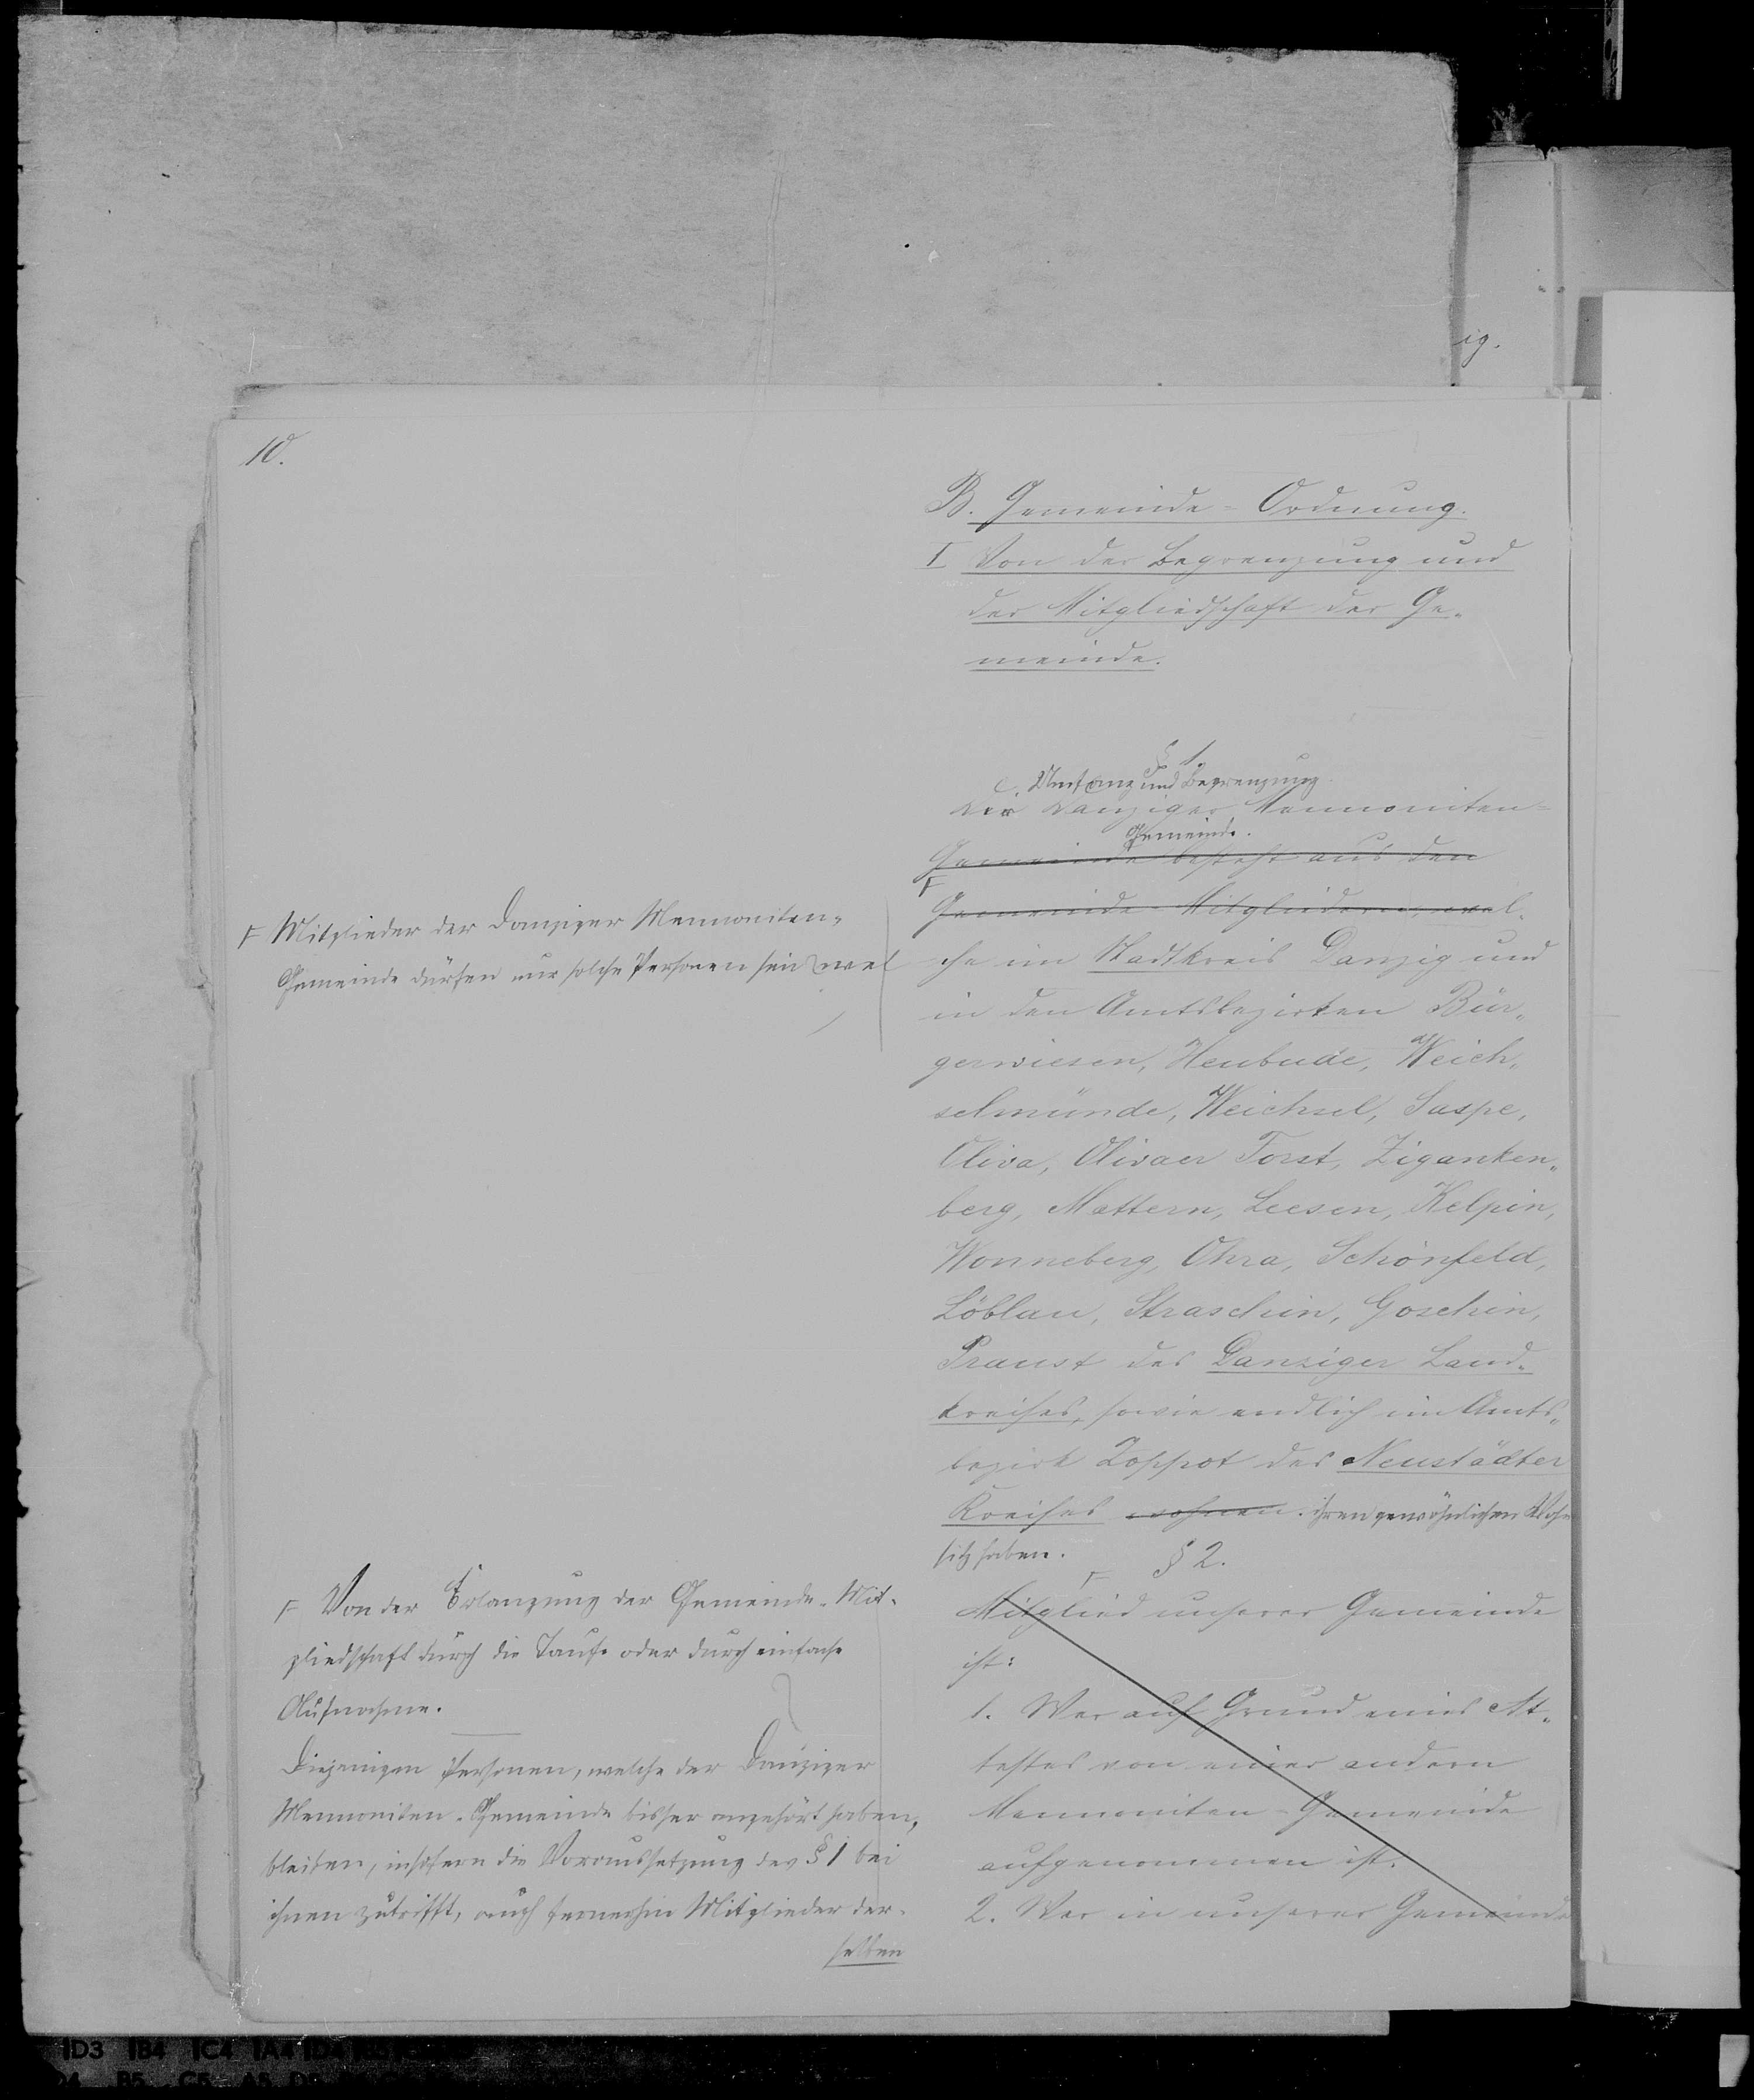 ig.
10.
B. Gemeinde-Ordnung.
I Von der Begrenzung und
der Mitgliedschaft der Ge-
meinde.
§ 1.
Umfang und Begrenzung
Die Danziger Mennoniten-
Gemeinde.
Gemeinde besteht aus den
F
Gemeinde-Mitgliedern, wel-
che im Stadtkreis Danzig und
in den Amtsbezirken Bür-
gerwiesen, Heubude, Weich-
selmünde, Weichsel, Saspe,
Oliva, Olivaer Forst, Ziganken-
berg, Mattern, Leesen, Kelpin,
Wonneberg, Ohra, Schönfeld,
Löblau, Straschin, Goschin,
Praust des Danziger Land-
kreises, sowie endlich im Amts-
bezirk Zoppot des Neustädter
Kreises wohnen. ihren gewöhnlichen Wohn
sitz haben.
§ 2.
F
Mitglied unserer Gemeinde
ist:
1. Wer auf Grund eines At-
testes von einer andern
Mennoniten-Gemeinde
aufgenommen ist.
2. Wer in unserer Gemeinde
F Mitglieder der Danziger Mennoniten-
Gemeinde dürfen nur solche Personen sein wel
F Von der Erlangung der Gemeinde-Mit-
gliedschaft durch die Taufe oder durch einfache
Aufnahme.
Diejenigen Personen, welche der Danziger
Mennoniten-Gemeinde bisher angehört haben,
bleiben, insofern die Voraussetzung des § 1 bei
ihnen zutrifft, auch fernerhin Mitglieder der-
selben
1D3 1B4 1C4 1A4 1D4